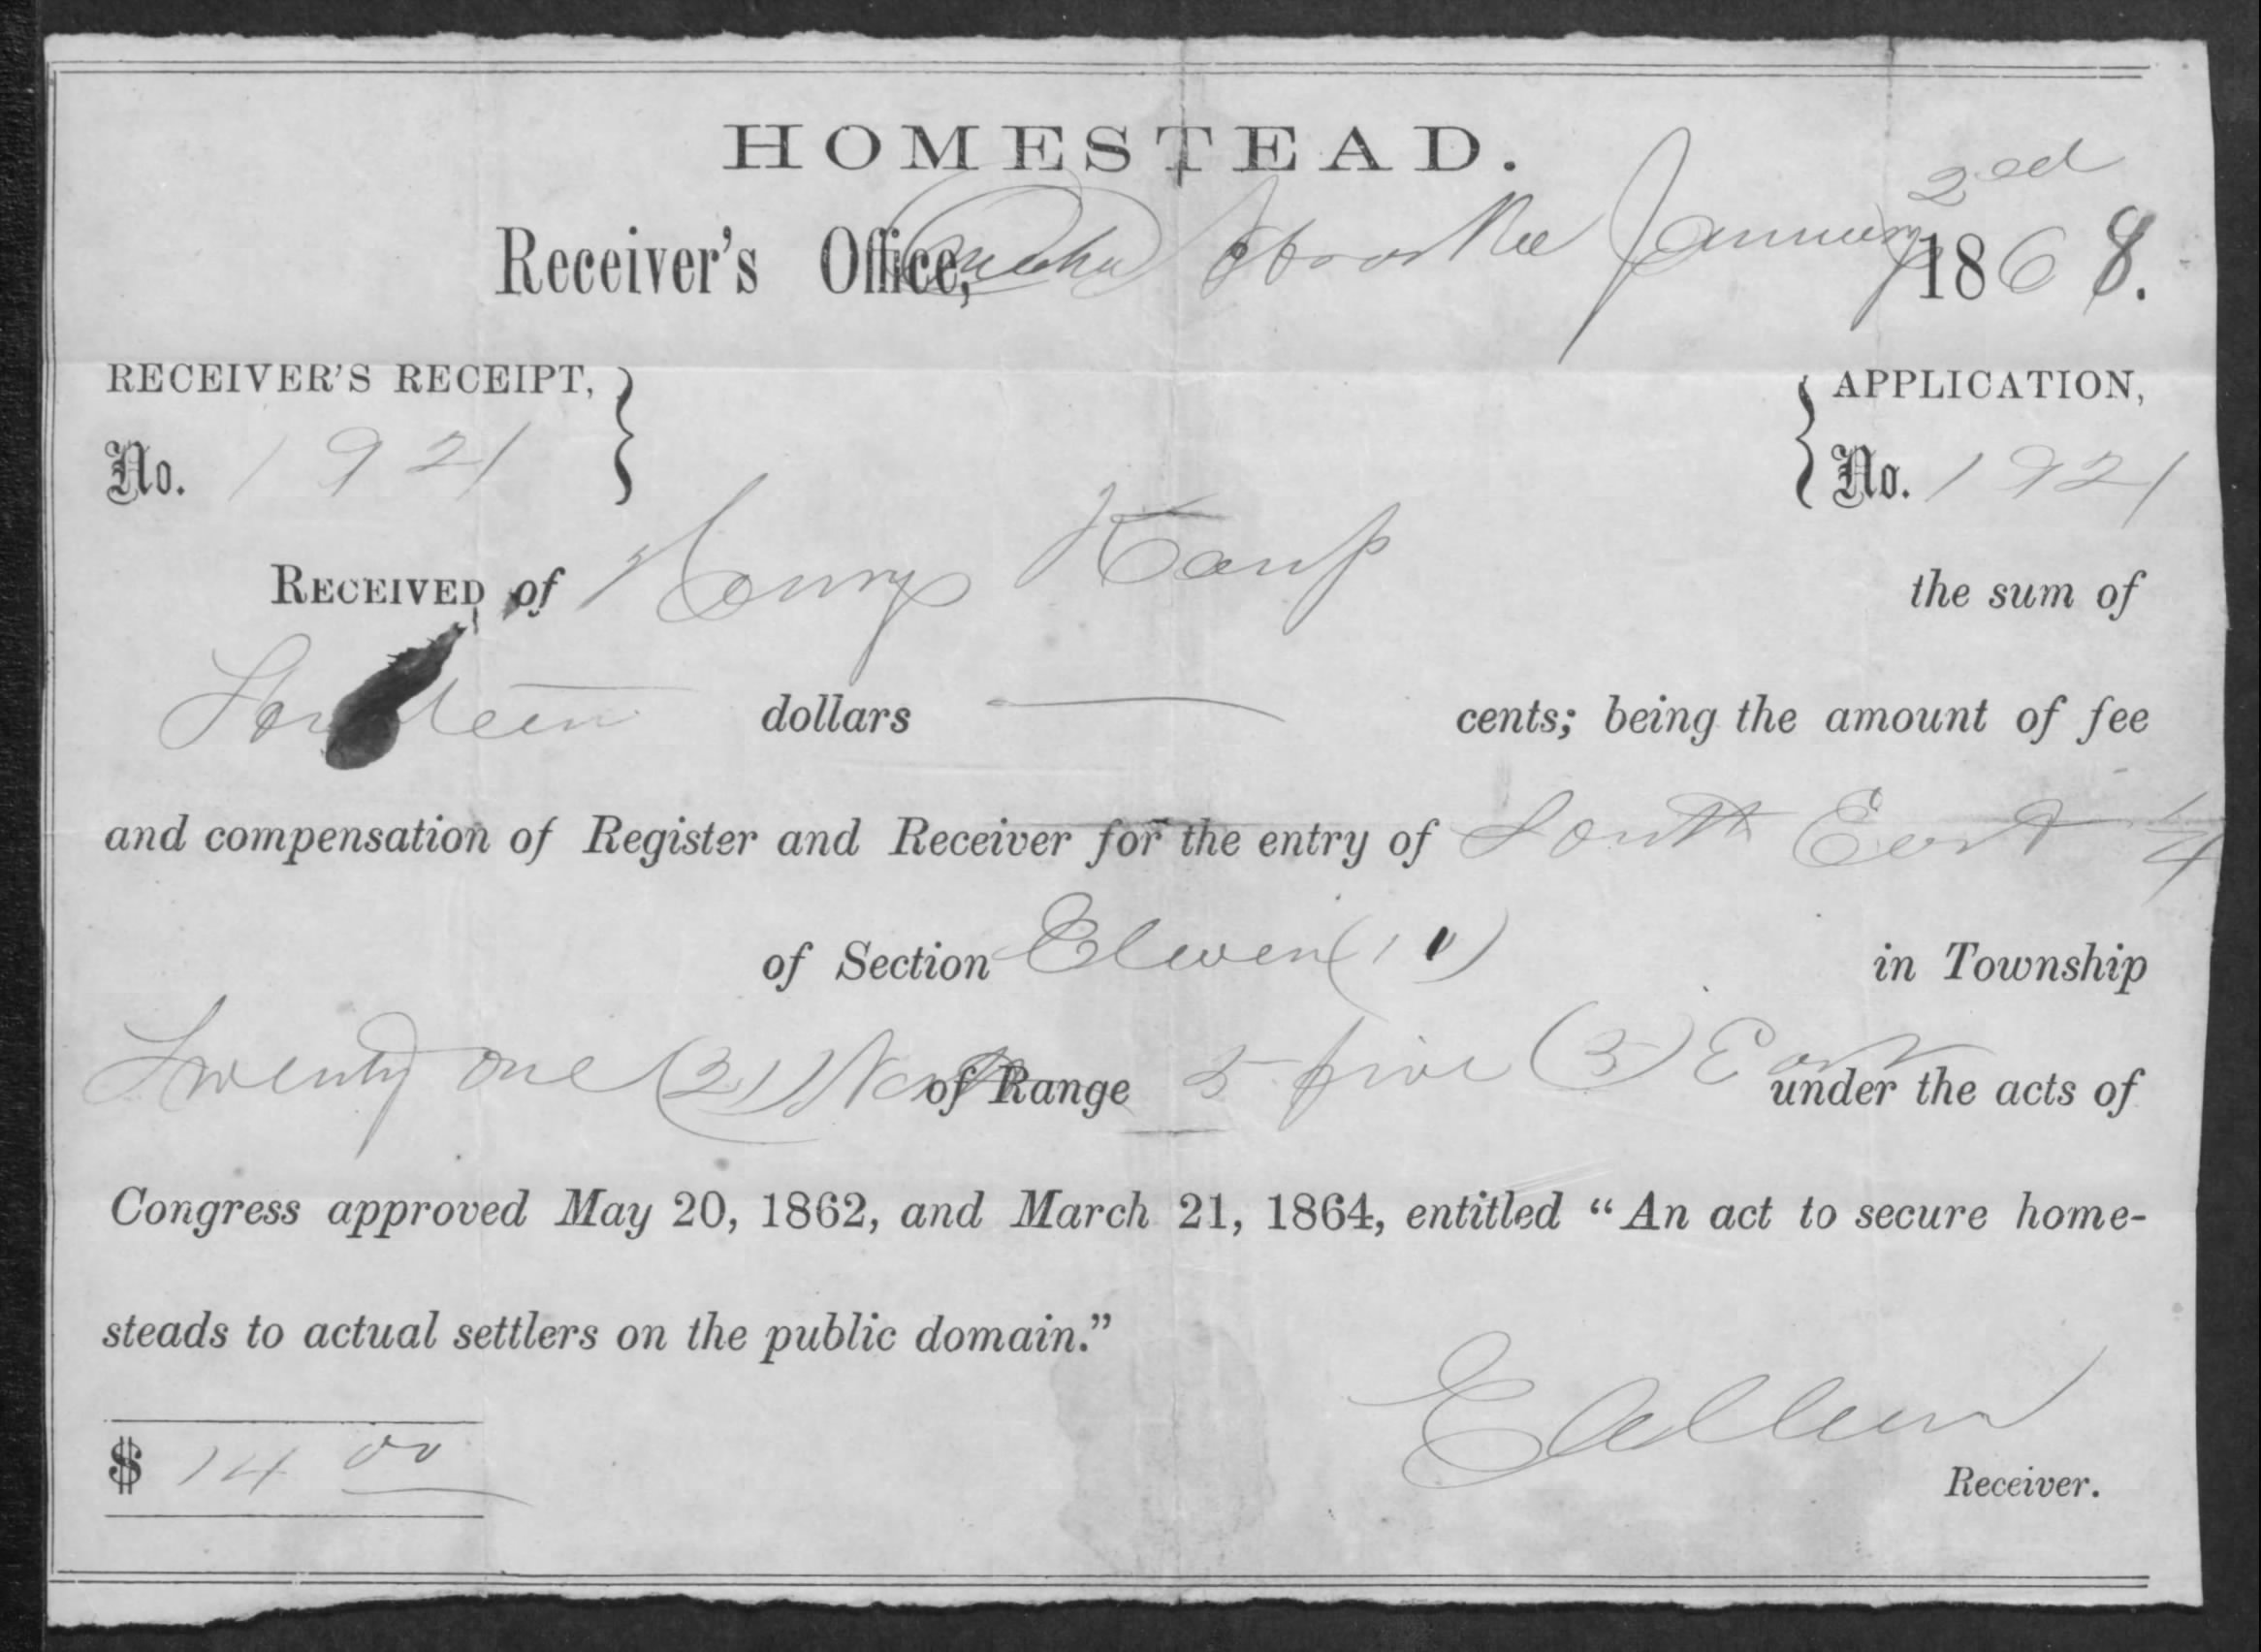 HOMESTEAD.
Receiver's Office, Omaha Nebraska January 2ed 1868.
RECEIVER'S RECEIPT, APPLICATION,
No. 1921 No. 1921
RECEIVED of Henry Kamp the sum of
Fourteen dollars — cents; being the amount of fee
and compensation of Register and Receiver for the entry of South East 1/4
of Section Eleven (11) in Township
Twenty one (21) North of Range 5 five (5) East under the acts of
Congress approved May 20, 1862, and March 21, 1864, entitled “An act to secure home-
steads to actual settlers on the public domain.”
$ 14 00
Receiver.